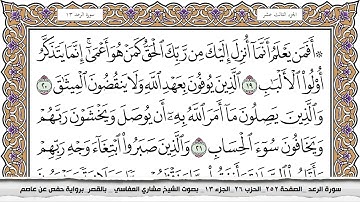 سورة الرعد ١٣
الجزء الثالث عشر
أَفَمَن يَعْلَمُ أَنَّمَآ أُنزِلَ إِلَيْكَ مِن رَّبِّكَ ٱلْحَقُّ كَمَنْ هُوَ أَعْمَىٰٓ ۚ إِنَّمَا يَتَذَكَّرُ
أُو۟لُوا۟ ٱلْأَلْبَـٰبِ ١٩ ٱلَّذِينَ يُوفُونَ بِعَهْدِ ٱللَّهِ وَلَا يَنقُضُونَ ٱلْمِيثَـٰقَ ٢٠
وَٱلَّذِينَ يَصِلُونَ مَآ أَمَرَ ٱللَّهُ بِهِۦٓ أَن يُوصَلَ وَيَخْشَوْنَ رَبَّهُمْ
وَيَخَافُونَ سُوٓءَ ٱلْحِسَابِ ٢١ وَٱلَّذِينَ صَبَرُوا۟ ٱبْتِغَآءَ وَجْهِ رَبِّهِمْ
سورة الرعد _ الصفحة ٢٥٢ _ الحزب ٢٦ _ الجزء ١٣ _ بصوت الشيخ مشاري العفاسي _ بالقصر _ برواية حفص عن عاصم